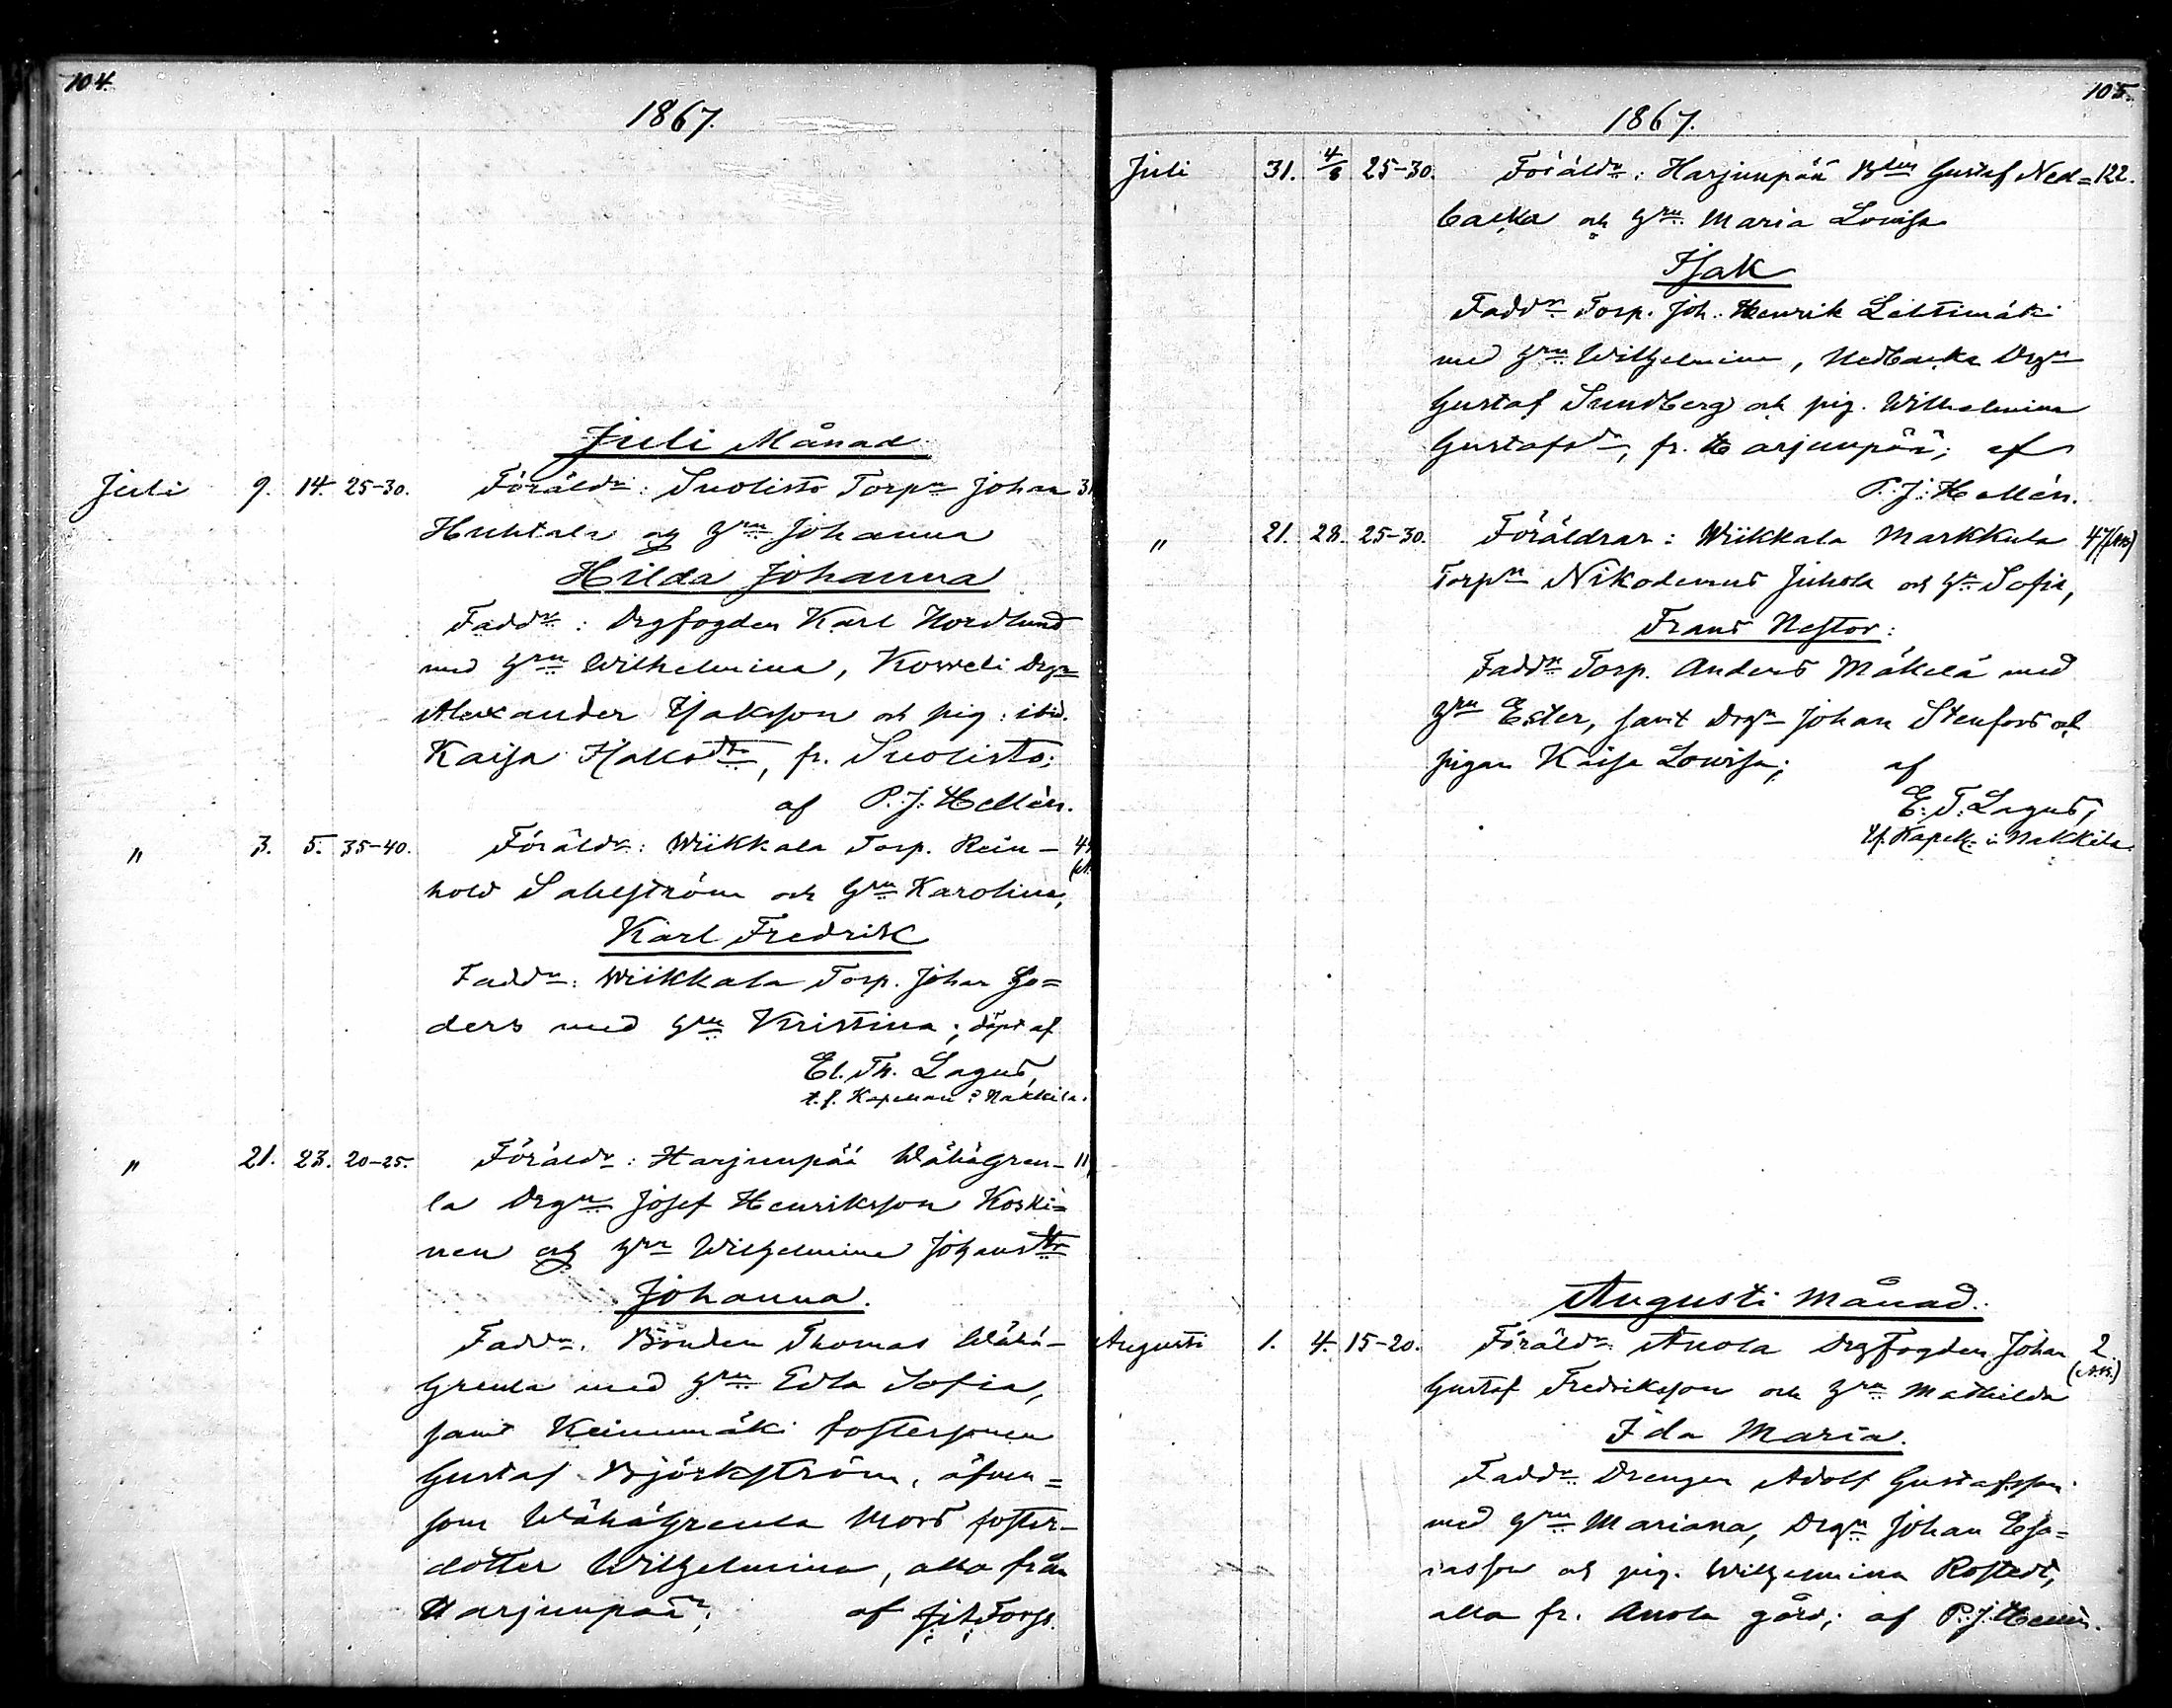 104.
1867.
Juli Månad
Juli 9. 14. 25-30. Föräldr: Suolisto Torpn Johan 31
Huhtala och Hru Johanna
Hilda Johanna
Faddr: Drgfogden Karl Nordlund
med Hru Wilhelmina, Korveli Drgn
Alexander Isaksson och pig: ibid.
Kaisa Isaksdtr, fr. Suolisto;
af P. J. Hellén.
" 3. 5. 35-40. Föräldr: Wiikkala Torp. Rein-
hold Sahlström och Hru Karolina,
Karl Fredrik
Faddr: Wiikkala Torp. Johan Go=
ders med Hru Kristina; döpt af
El. Th. Lagus,
t. f. Kapellan i Nakkila.
" 21. 23. 20-25. Föräldr: Harjunpää Wähägren- 11
la Drgn Josef Henriksson Koski=
nen och Hru Wilhelmina Johansdtr
Johanna.
Faddr. Bonden Thomas Wähä-
Grenla med Hru Edla Sofia,
samt Keinumäki fostersonen
Gustaf Björkström, äfven=
som Wähägrenla Mors foster-
dotter Wilhelmina, alla från
Harjunpää; af
105.
1867.
Juli 31. 4/8 25-30. Föräldr: Harjunpää Bden Gustaf Ned= 122.
backa och Hru Maria Lovisa
Isak
Faddr Torp. Joh. Henrik Lehtimäki
med Hru Wilhelmina, Nedbacka Drgn
Gustaf Sundberg och pig. Wilhelmina
Gustafsdr, fr. Harjunpää; af
P. J. Hellén.
" 21. 28. 25-30. Föräldrar: Wiikkala Markkula 47
Torpn Nikodemus Juhola och Hu Sofia,
Frans Nestor:
Faddr Torp. Anders Mäkelä med
Hru Ester, samt Drgn Johan Stenfors och
pigan Kaisa Lovisa; af
E. T. Lagus,
t.f. Kapell. i Nakkila.
Augusti Månad.
Augusti 1. 4. 15-20. Föräldr Anola Drgfogden Johan 2.
Gustaf Fredriksson och Hru Mathilda
Ida Maria.
Faddr Drengen Adolf Gustafsson
med Hru Mariana, Drgn Johan Esa=
iasson och pig. Wilhelmina Rostedt,
alla fr. Anola gård; af P. J. Hellén.